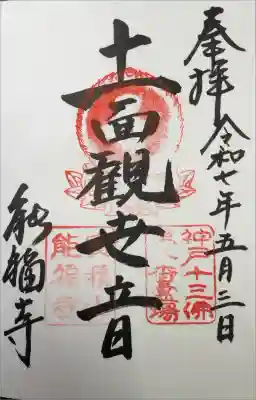 奉拝
令和七年五月三日
十一面觀世音
能福寺
神戸十三佛
能福寺